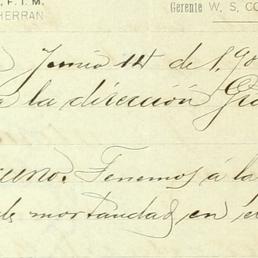 F. I. M.
HERRAN
Gerente W. S. CO
Junio 14 de 190
a la dirección Gra
cuno. Tenemos á la
de mortandad en é